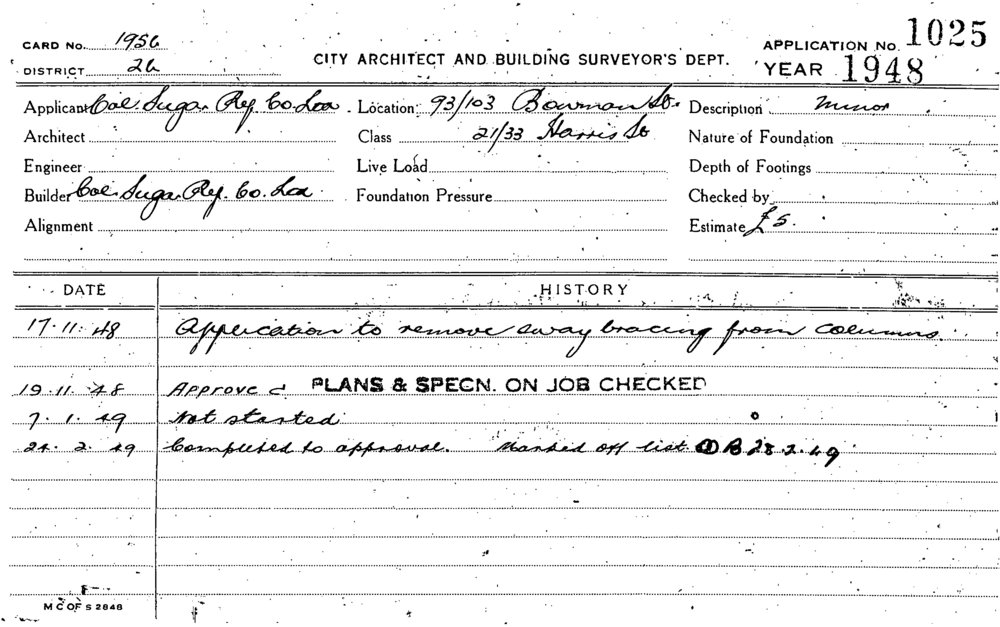 CARD No. 1956
DISTRICT 26
CITY ARCHITECT AND BUILDING SURVEYOR'S DEPT.
APPLICATION No. 1025
YEAR 1948
Applicant Col. Sugar Ref. Co. Ltd. Location 93/103 Bowman St. Description Minor
Architect Class 21/33 Harris St Nature of Foundation
Engineer Live Load Depth of Footings
Builder Col. Sugar Ref. Co. Ltd Foundation Pressure Checked by
Alignment Estimate £5.
DATE HISTORY
17.11.48 Application to remove sway bracing from columns.
19.11.48 Approved PLANS & SPECN. ON JOB CHECKED
7.1.49 Not started
24.2.49 Completed to approval. Marked off list B 28.2.49
M C OF S 2848